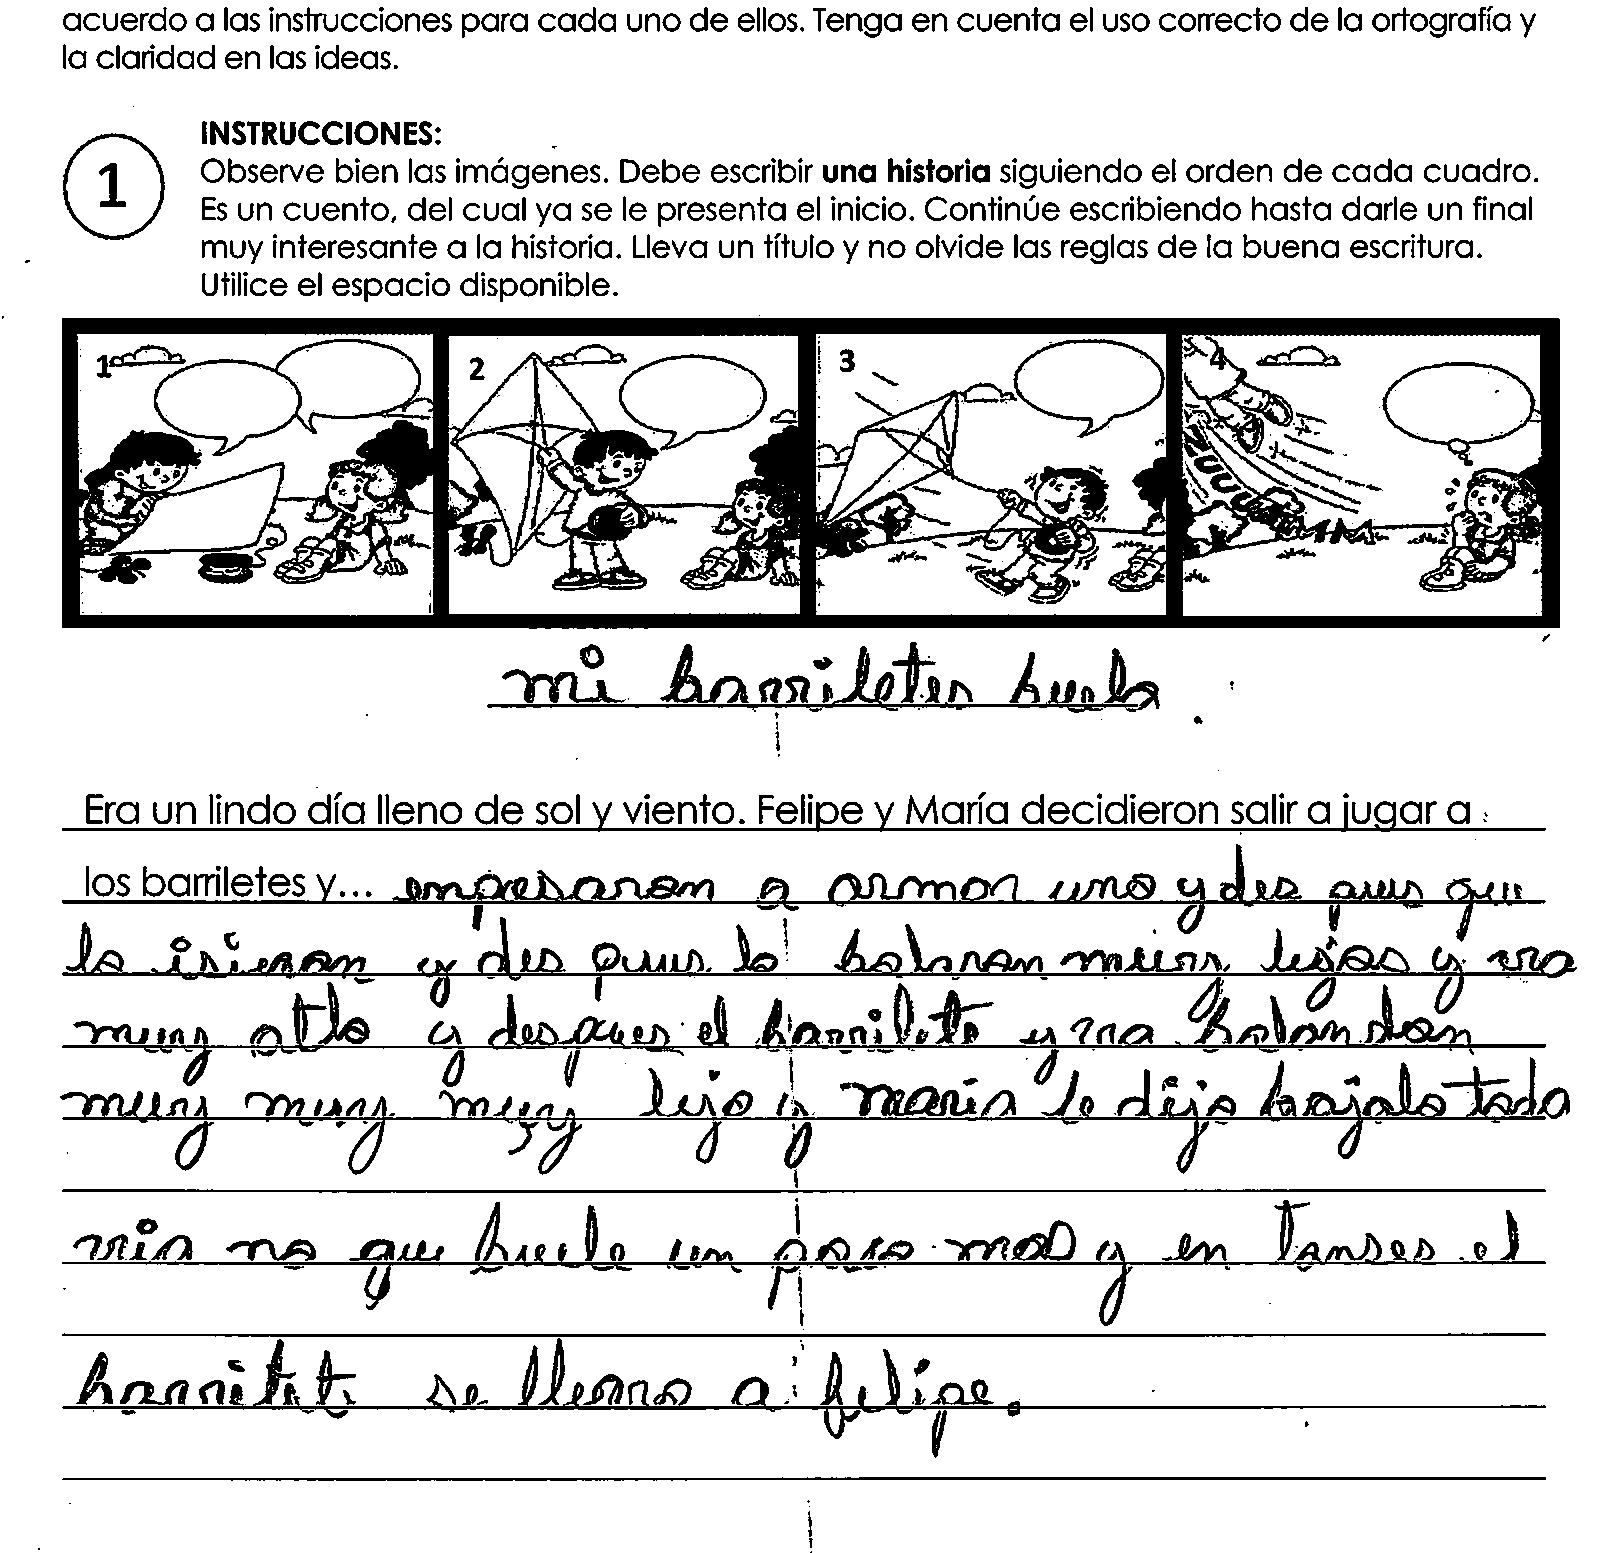 acuerdo a las instrucciones para cada uno de ellos. Tenga en cuenta el uso correcto de la ortografía y
la claridad en las ideas.
1
INSTRUCCIONES:
Observe bien las imágenes. Debe escribir una historia siguiendo el orden de cada cuadro.
Es un cuento, del cual ya se le presenta el inicio. Continúe escribiendo hasta darle un final
muy interesante a la historia. Lleva un título y no olvide las reglas de la buena escritura.
Utilice el espacio disponible.
1 2 3 4
ZUUUUM
mi barriletes buela
Era un lindo día lleno de sol y viento. Felipe y María decidieron salir a jugar a
los barriletes y... empesaron a armar uno y des pues que
lo isieron y des pues lo bolaron muy lejos y era
muy alto y despues el barrilete y era bolandon
muy muy muy lejo y maría le dijo bajalo toda
via no que buele un poco mas y en tonses el
se lleboo a felipe.